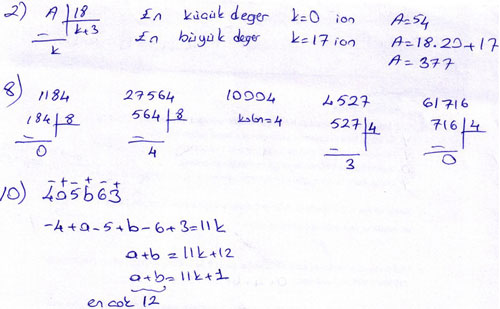 2) A | 18 En küçük değer k=0 için A=54
k+3 En büyük değer k=17 için A=18.20+17
k A=377
8) 1184 27564 10004 4527 61716
184 | 8 564 | 8 kalan=4 527 | 4 716 | 4
0 4 3 0
10) 4a5b63
- + - + - +
-4+a-5+b-6+3=11k
a+b=11k+12
a+b=11k+1
en çok 12